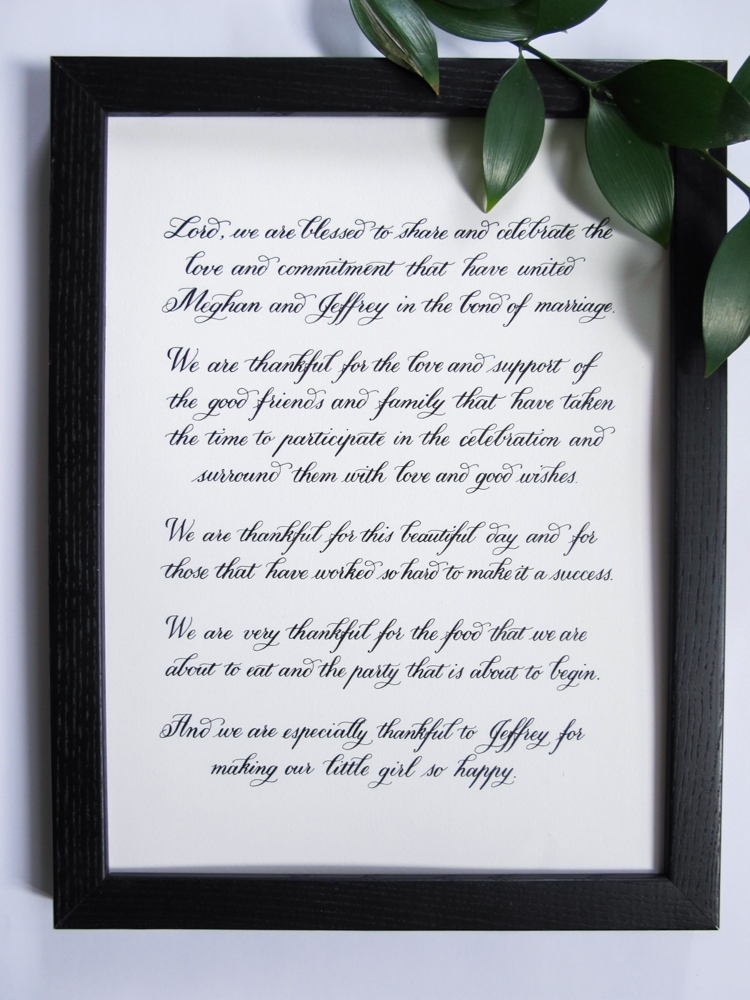 Lord, we are blessed to share and celebrate the
love and commitment that have united
Meghan and Jeffrey in the bond of marriage.
We are thankful for the love and support of
the good friends and family that have taken
the time to participate in the celebration and
surround them with love and good wishes.
We are thankful for this beautiful day and for
those that have worked so hard to make it a success.
We are very thankful for the food that we are
about to eat and the party that is about to begin.
And we are especially thankful to Jeffrey for
making our little girl so happy.